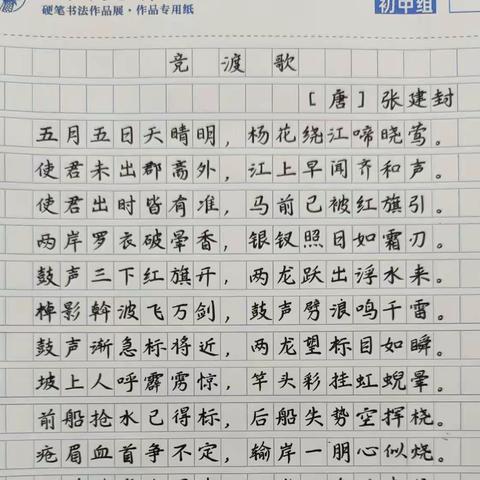 硬笔书法作品展·作品专用纸
初中组
竞渡歌
[唐]张建封
五月五日天晴明,杨花绕江啼晓莺。
使君未出郡斋外,江上早闻齐和声。
使君出时皆有准,马前已被红旗引。
两岸罗衣破晕香,银钗照日如霜刃。
鼓声三下红旗开,两龙跃出浮水来。
棹影斡波飞万剑,鼓声劈浪鸣千雷。
鼓声渐急标将近,两龙望标目如瞬。
坡上人呼霹雳惊,竿头彩挂虹蜺晕。
前船抢水已得标,后船失势空挥桡。
疮眉血首争不定,输岸一朋心似烧。